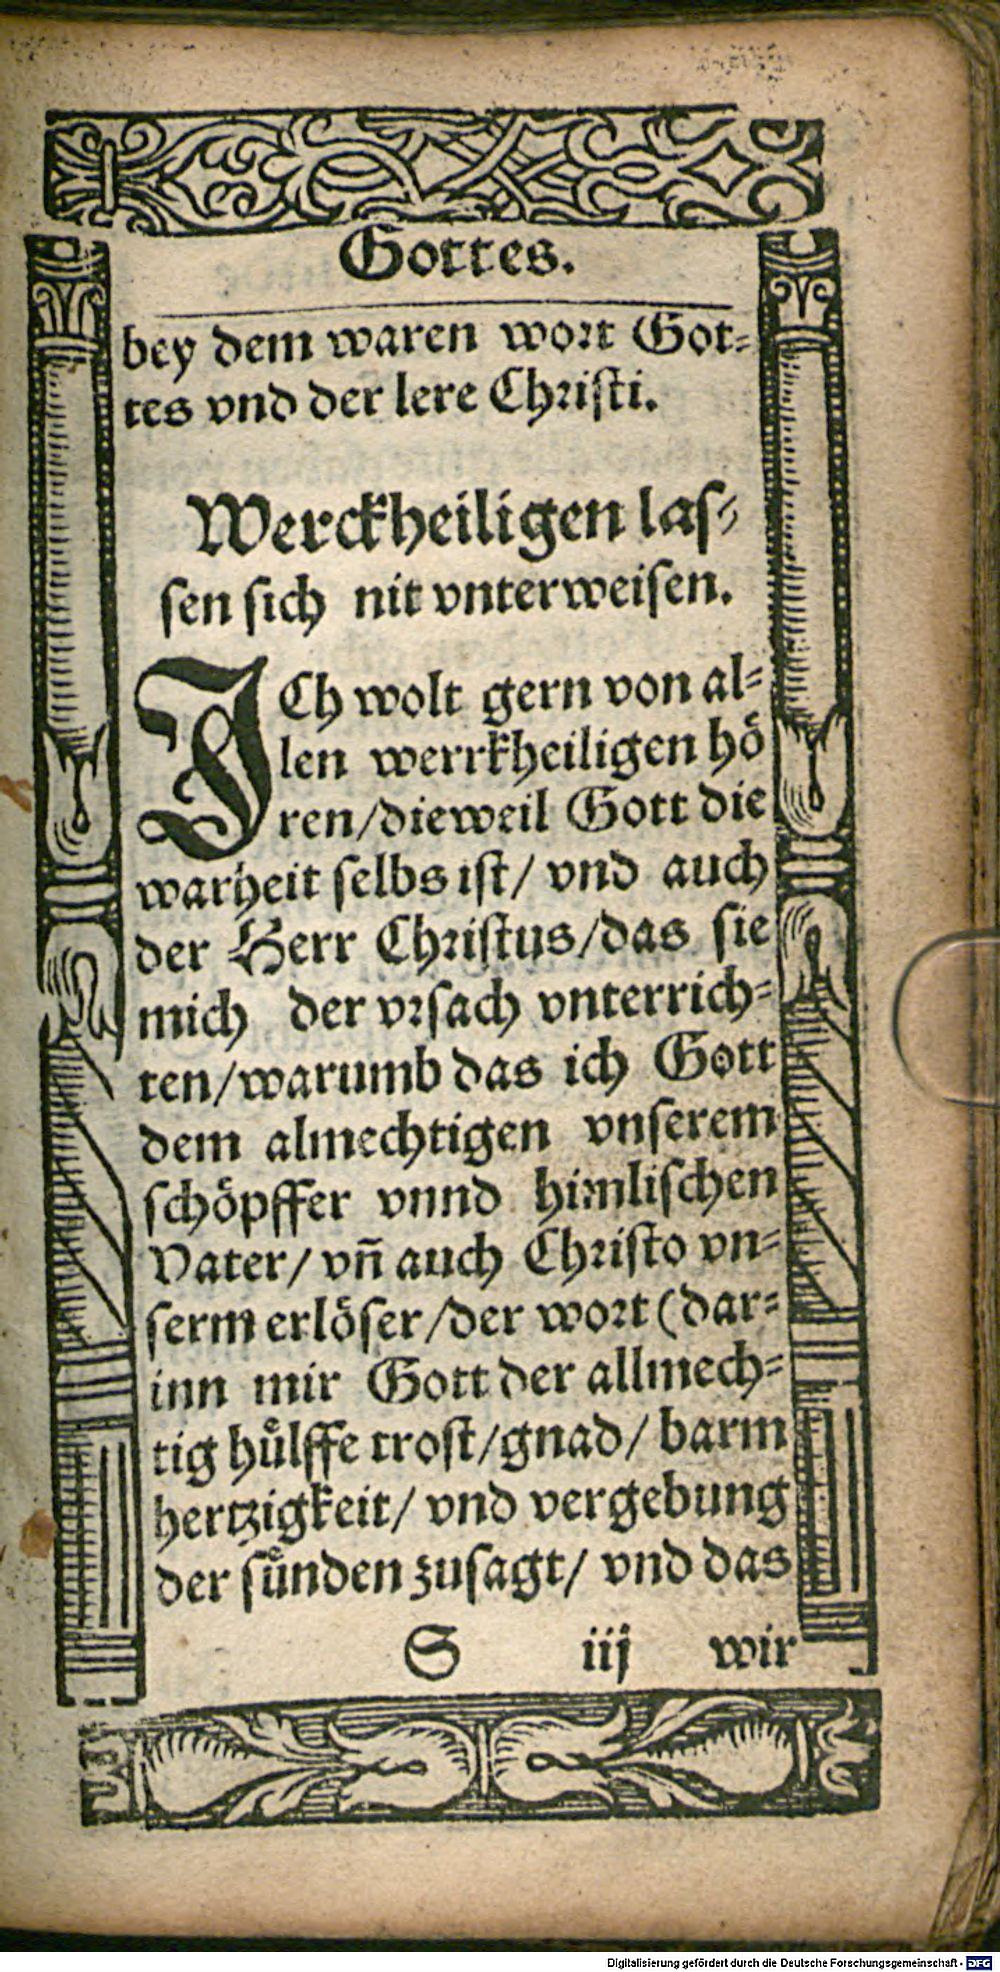 Gottes.
bey dem waren wort Got⸗
tes vnd der lere Christi.
Werckheiligen las⸗
sen sich nit vnterweisen.
ICh wolt gern von al⸗
len werrkheiligen hö
ren/dieweil Gott die
warheit selbs ist/ vnd auch
der Herr Christus/das sie
mich der vrsach vnterrich⸗
ten/warumb das ich Gott
dem almechtigen vnserem
schöpffer vnnd himlischen
Vater/ vñ auch Christo vn⸗
serm erlöser/der wort (dar⸗
inn mir Gott der allmech⸗
tig hülffe trost/gnad/ barm
hertzigkeit/ vnd vergebung
der sünden zusagt/ vnd das
S iij wir
Digitalisierung gefördert durch die Deutsche Forschungsgemeinschaft - DFG